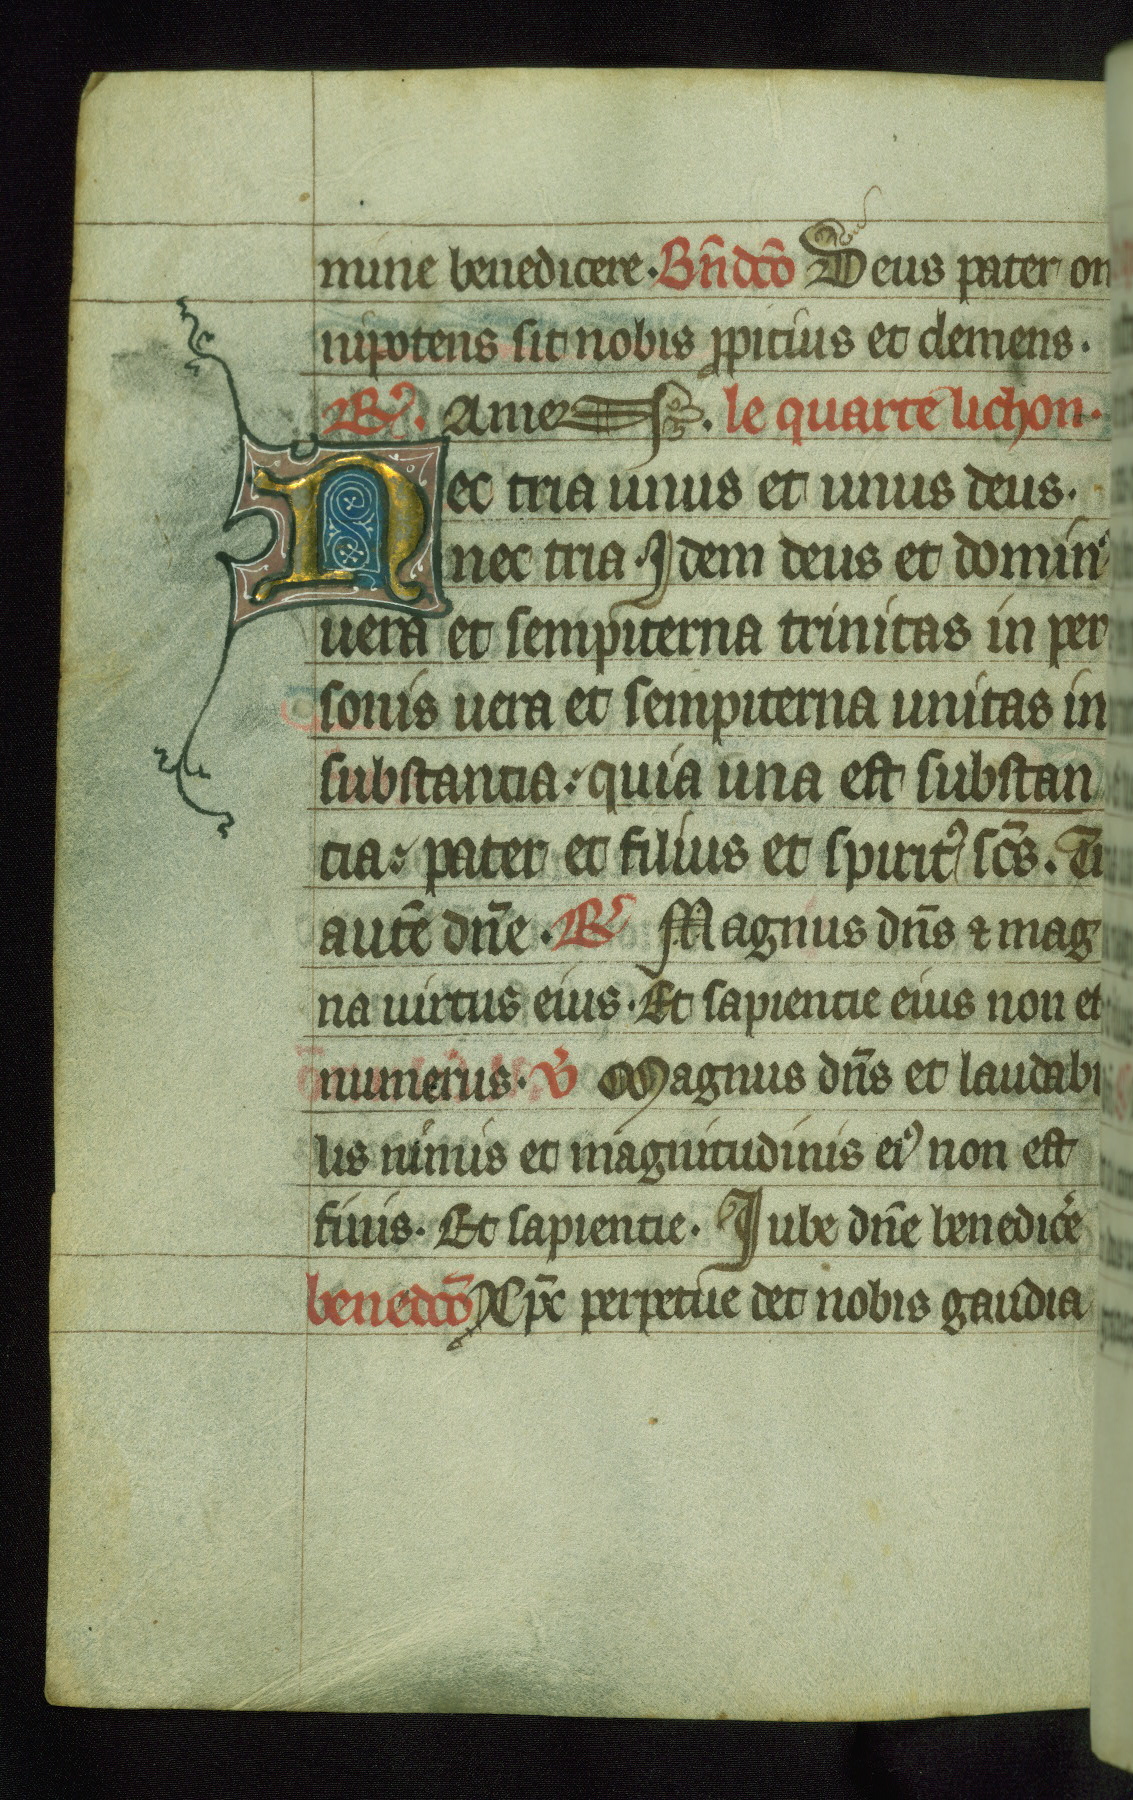 mine benedicere. Bn̄dcō Deus pater om
nipotens sit nobis ꝓpicius et clemens.
R̷. Amen. le quarte lichon.
Nec tria unus et unus deus.
nec tria. Idem deus et dominꝰ
uera et sempiterna trinitas in per
sonis uera et sempiterna unitas in
substantia: quia una est substan
cia: pater et filius et spiritꝰ scs̄. Tu
autē dn̄e. R̷ Magnus dn̄s ⁊ mag
na uirtus eius. Et sapientie eius non est
numerus. V̷ Magnus dn̄s et laudabi
lis nimis et magnitudinis eiꝰ non est
finis. Et sapientie. Iube dn̄e benedicē
benedcō Xp̄c perpetue det nobis gaudia